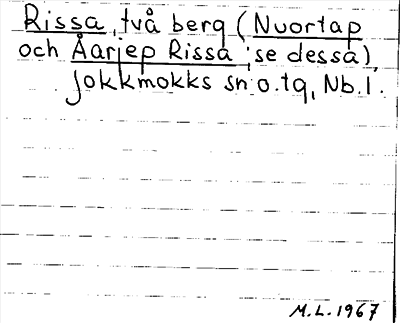 Rissa, två berg (Nuortap
och Åarjep Rissa, se dessa),
Jokkmokks sn o. tg, Nb. l.
M.L. 1967